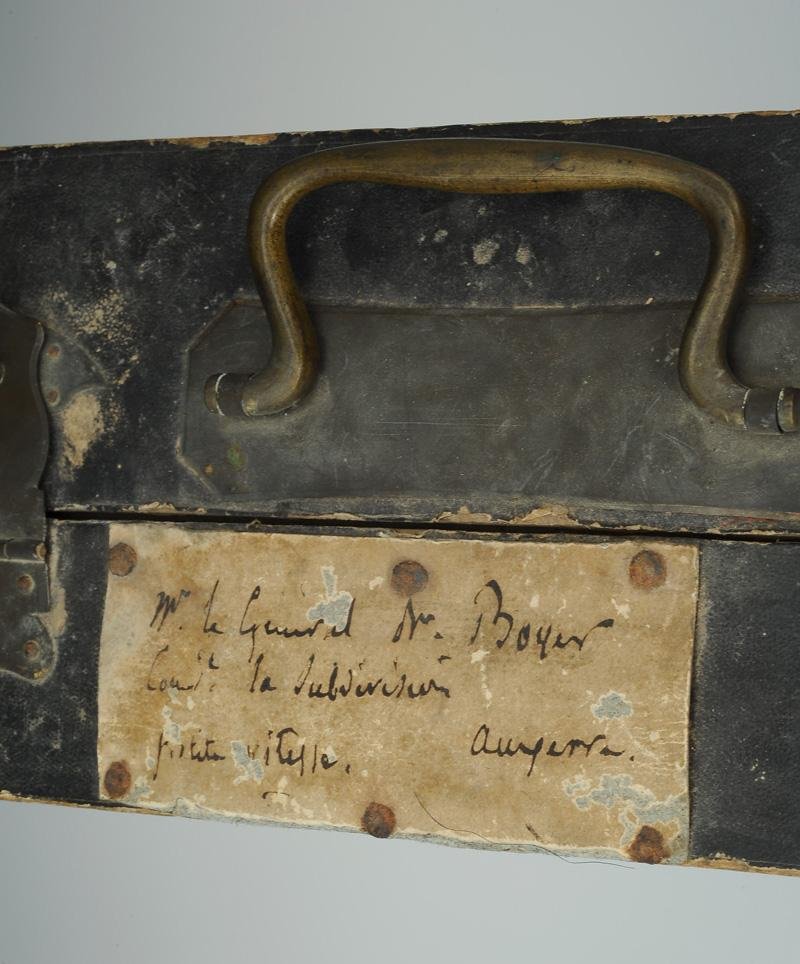 Mr. le Général Nr. Boyer
Comdt. la Subdivision
petite vitesse. Auxerre.